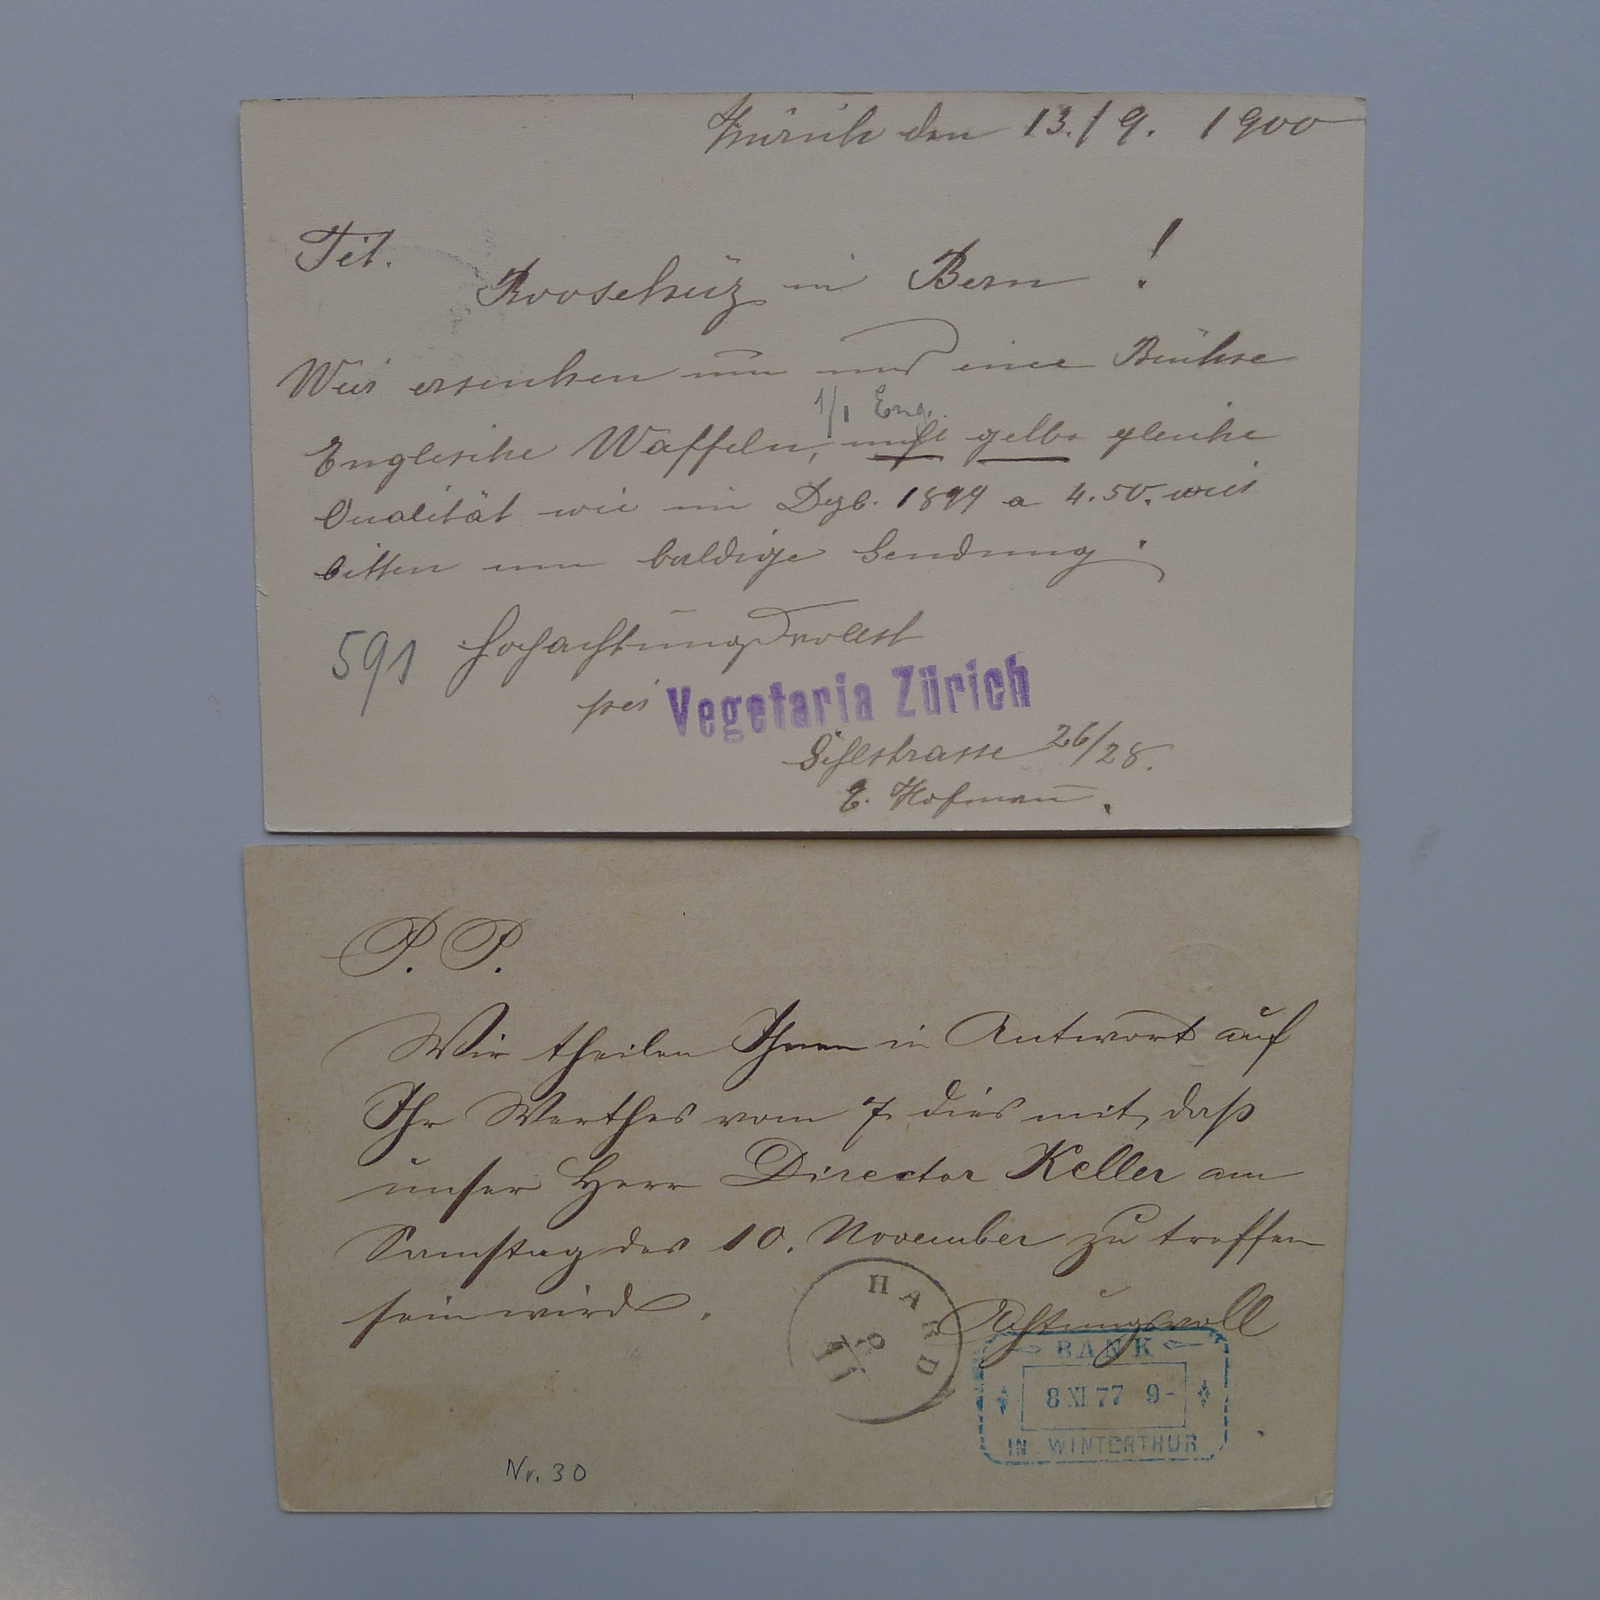 Zürich den 13./9. 1900
Tit.
Rooschüz in Bern !
Wir ersuchen um eine Büchse
1/1 Eng.
Englische Waffeln, gelbe gleiche
Qualität wie im Dezb. 1899 a 4.50. wir
bitten um baldige Sendung.
591 Hochachtungsvollst
per Vegetaria Zürich
Sihlstrasse 26/28.
E. Hofmann.
P. P.
Wir theilen Ihnen in Antwort auf
Ihr Werthes vom 7. dies mit, daß
unser Herr Director Keller am
Samstag des 10. November zu treffen
sein wird.
Achtungsvoll
HARD
BANK
8 XI 77 9-
IN WINTERTHUR
Nr. 30